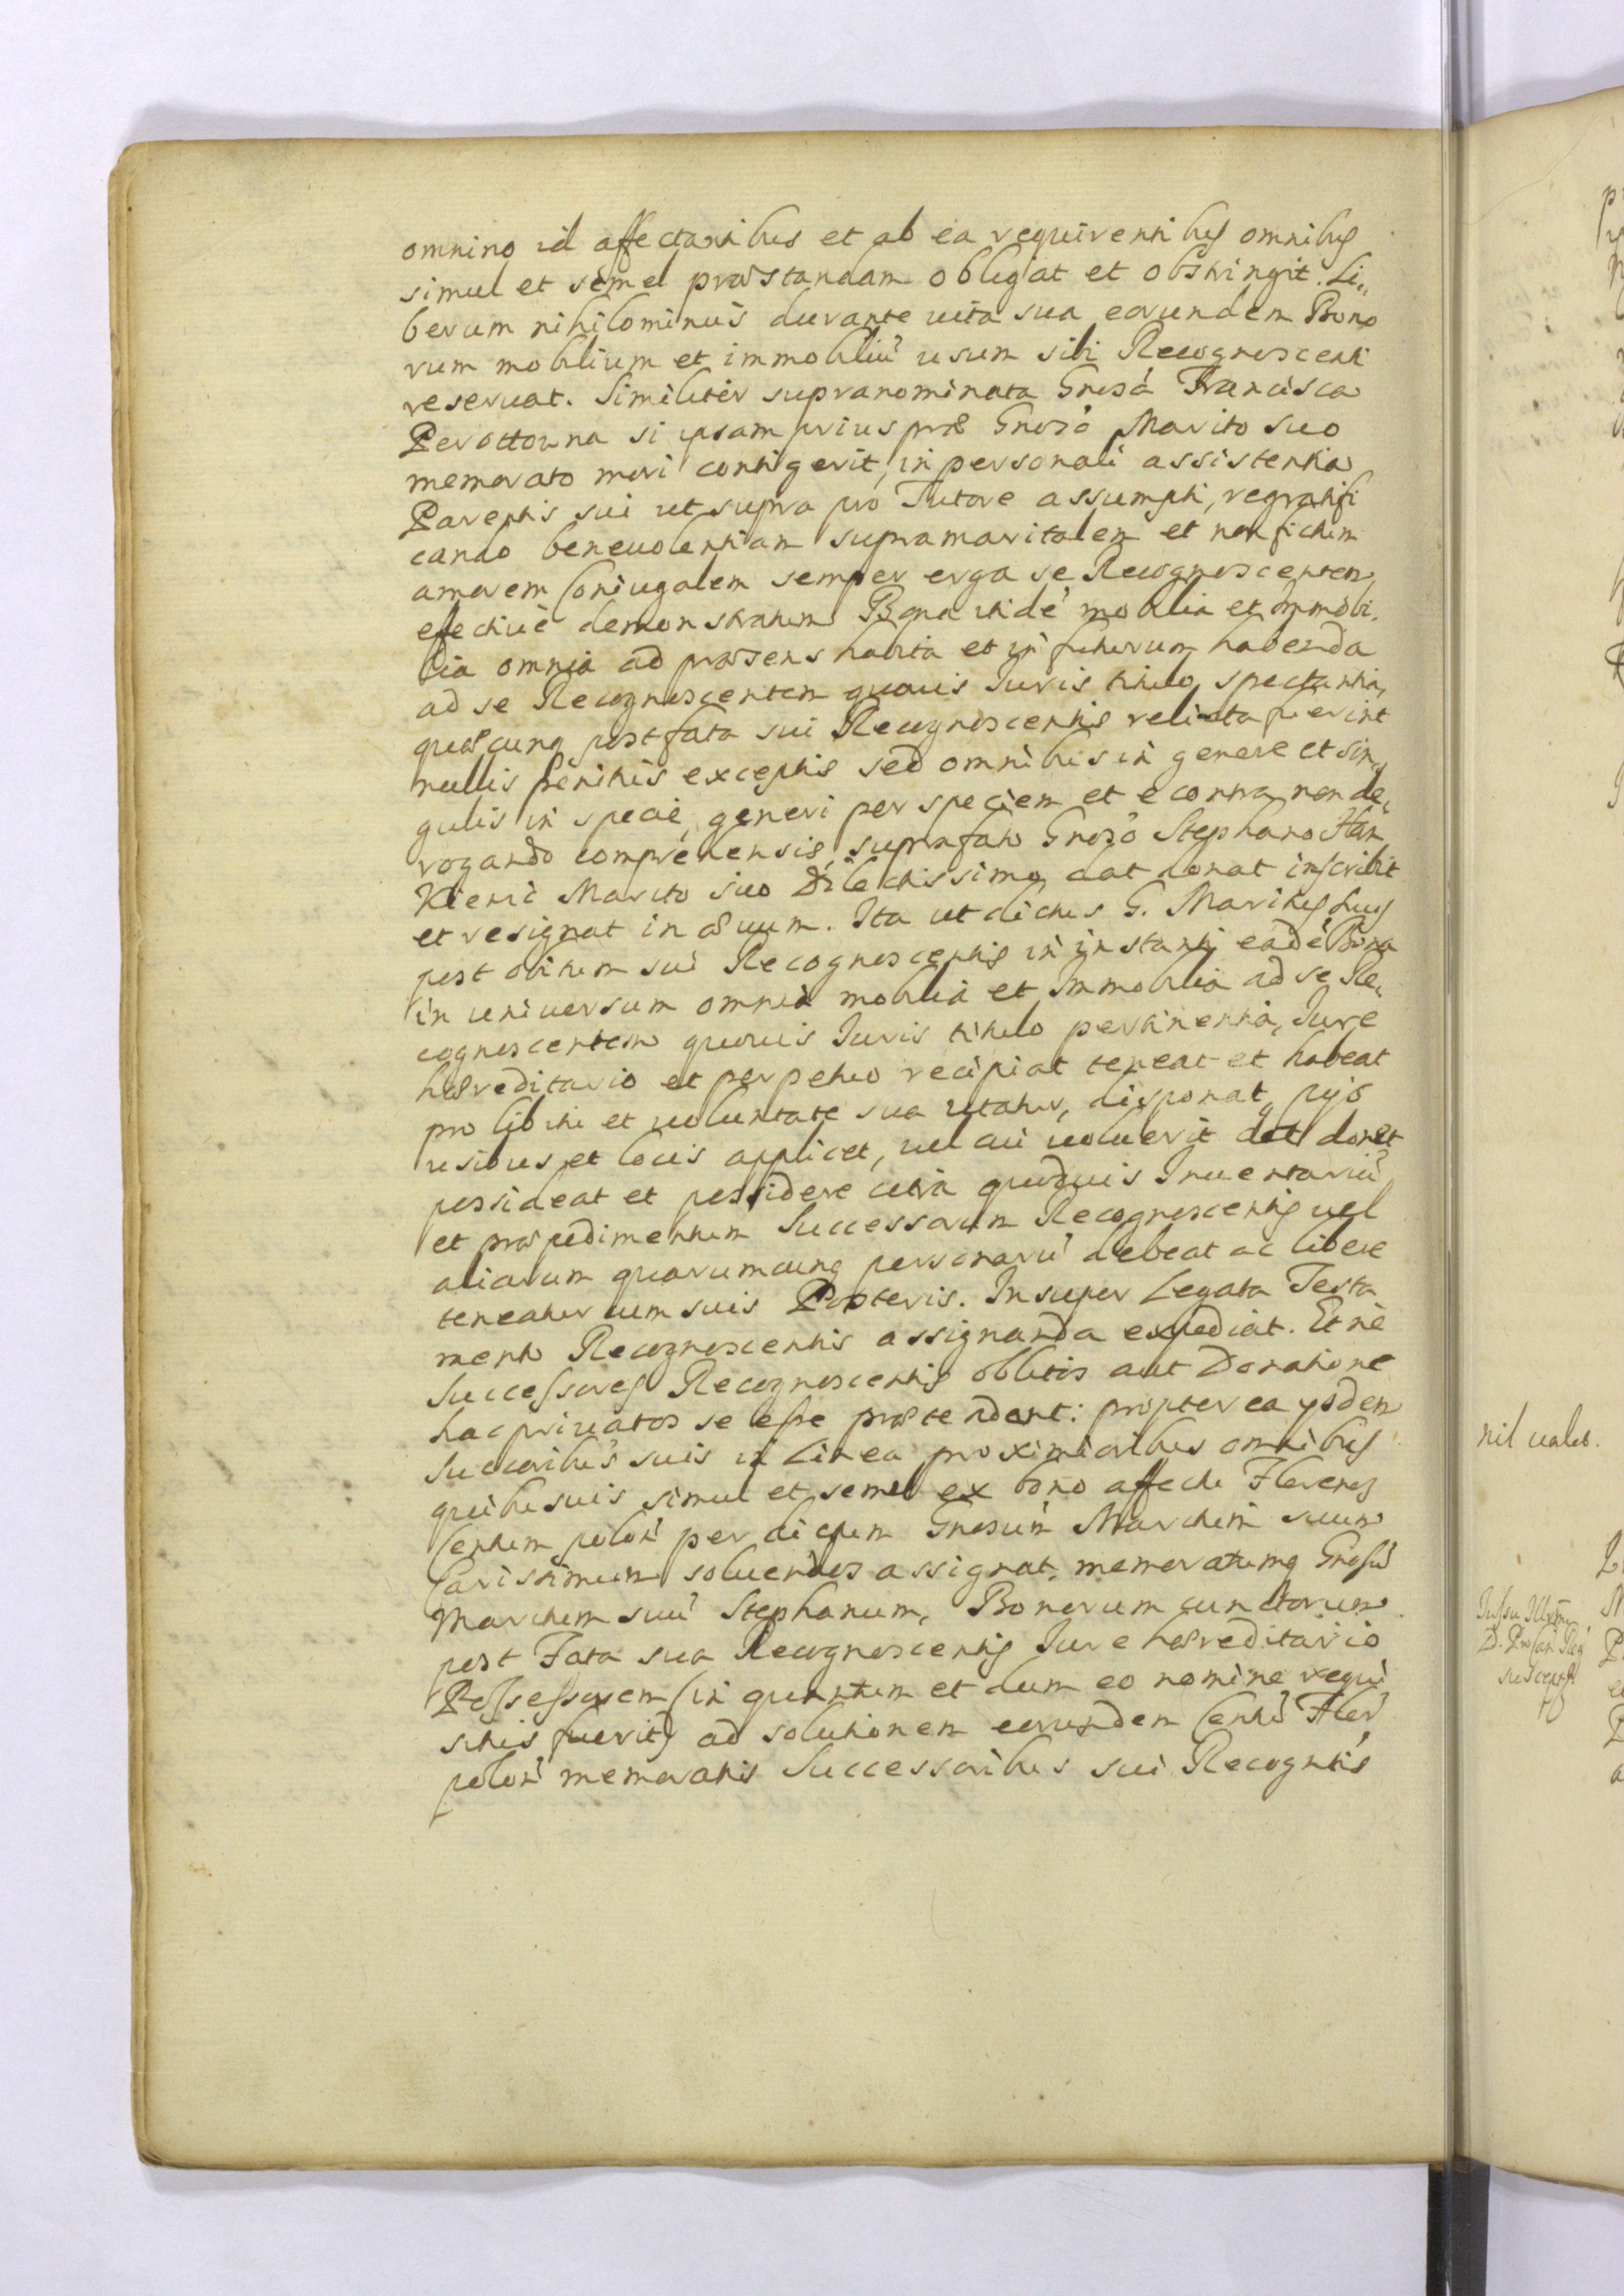 omnino id affectantibus et ab ea requirentibus omnibus
simul et semel præstandam obligat et obstringit. Li„
berum nihilominus durante uita sua earundem Bono
rum mobilium et immobiliū usum sibi Recognoscenti
reseruat. Similiter supranominata Gnosa Francisca
Perottowna si ipsam prius præ Gnoso Marito suo
memorato mori contigerit, in personali assistentia
Parentis sui ut supra pro Tutore assumpti, regratifi
cando beneuolentiam supramaritalem et non fictum
amorem Coniugalem semper erga se Recognoscentem
efectiuè demonstratum Bona itidē mobilia et Immobi„
lia omnia ad præsens habita et in futurum habenda
ad se Recognoscentem quouis Iuris titulo spectantia,
quæcunq post fata sui Recognoscentis relicta fuerint
nullis penitus exceptis sed omnibus in genere et sin„
gulis in specie, generi per speciem et e contra non de„
rogando comprehensis, suprafato Gnoso Stephano Han
Kieni Marito suo Dilectissimo dat donat inscribit
et resignat in æuum. Ita ut dictus G. Maritus suus
post obitum sui Recognoscentis in instanti eadē Bona
in uniuersum omnia mobilia et Immobilia ad se Re„
cognoscentem quouis Iuris titulo pertinentia, Iure
hæreditario et perpetuo recipiat teneat et habeat
pro libitu et uoluntate sua utatur, disponat, pijs
usibus et locis applicet, uel cui uoluerit det donet
possideat et possidere citra quoduis Inuentariū
et præpedimentum Successorum Recognoscentis uel
aliarum quarumcunq personarū debeat ac libere
teneatur cum suis Posteris. Insuper Legata Testa
mento Recognoscentis assignanda expediat. Et nè
Successores Recognoscentis oblitos aut Donatione
hac priuatos se esse prætendant: propterea ijsdem
Succoribus suis in Linea proximioribus omnibus
quibusuis simul et semel ex bono affectu Florenos
Centum polon̄ per dictum Gnosum Maritum suum
Carissimum soluendos assignat. memoratumq Gnosū
Maritum suū Stephanum, Bonorum cunctorum
post Fata sua Recognoscentis Iure hæreditario
Possessorem (in quantum et dum eo nomine requi
situs fuerit) ad solutionem eorundem Centū Flor̄
polon̄ memoratis Successoribus sui Recogntis
nil ualet.